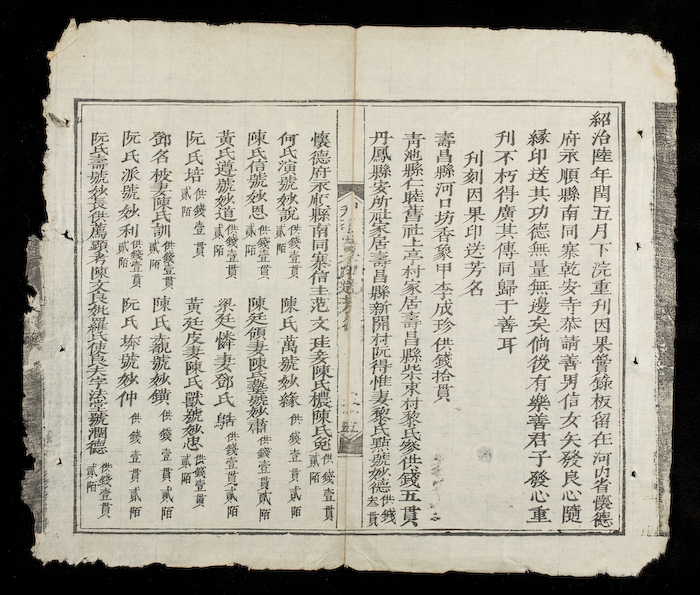 紹治陸年閏五月下浣重刊因果實錄板留在河內省懷德
府永順縣南同寨乾安寺恭請善男信女矢發良心隨
緣印送其功德無量無邊矣倘後有樂善君子發心重
刊不朽得廣其傳同歸于善耳
刊刻因果印送芳名
壽昌縣河口坊香象甲李成珍供錢拾貫
青池縣仁睦舊社上亭村家居壽昌縣柴東村黎氏參供錢五貫
丹鳳縣安所社家居壽昌縣新開村阮得惟妻黎氏點號妙德供錢叁貫
懷德府永順縣南同寨信士范文珪妾陳氏檂陳氏兔供錢壹貫貳陌
何氏演號妙說供錢壹貫貳陌 陳氏萬號妙緣供錢壹貫貳陌
陳氏信號妙恩供錢壹貫貳陌 陳廷領妻陳氏藝號妙肅供錢壹貫貳陌
黃氏遵號妙道供錢壹貫貳陌 梁廷憐妻鄧氏 供錢壹貫貳陌
阮氏培供錢壹貫貳陌 黃廷皮妻陳氏獸號妙忠供錢壹貫貳陌
鄧名被妻陳氏訓供錢壹貫貳陌 陳氏 號妙鐄供錢壹貫貳陌
阮氏派號妙利供錢壹貫貳陌 阮氏 號妙仲供錢壹貫貳陌
阮氏壽號妙長供薦顯考陳文良妣羅氏使良夫字法堂號潤德供錢壹貫貳陌